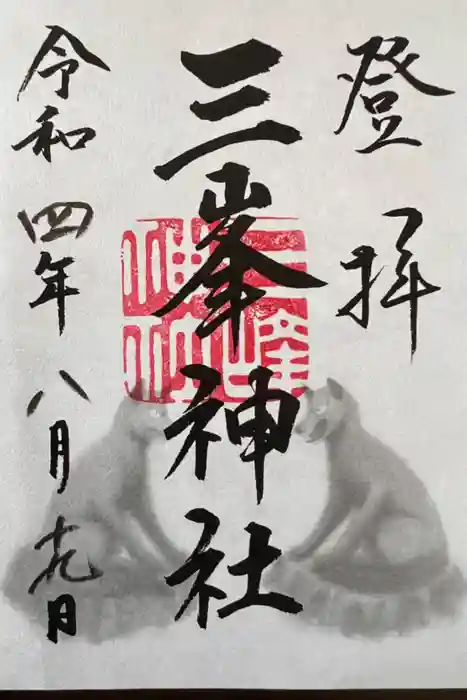 登拝
三峯神社
令和四年八月十九日